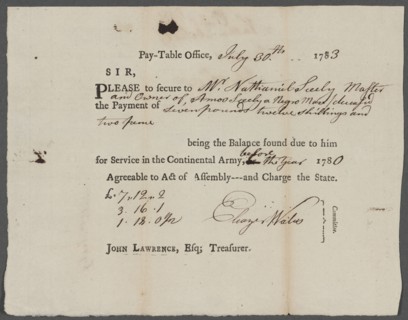 Pay-Table Office, July 30th 1783
SIR,
PLEASE to secure to Mr Nathaniel Seely Master
and Owner of, Amos Seely a Negro Man, deceased
the Payment of Seven pounds twelve shillings and
two pence
being the Balance found due to him
before
for Service in the Continental Army, the Year 1780
Agreeable to Act of Assembly---and Charge the State.
£ 7,,12,,2
3.16.1
1.18.0½
Eleazer Wales
Committee.
JOHN LAWRENCE, Esq; Treasurer.